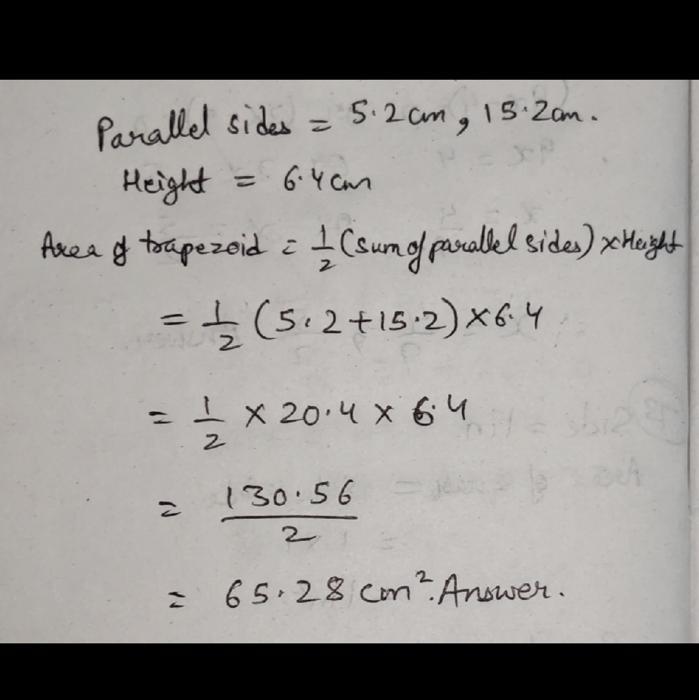 Parallel sides = 5.2 cm, 15.2 cm.
Height = 6.4 cm
Area of trapezoid = 1/2 (sum of parallel sides) × Height
= 1/2 (5.2 + 15.2) × 6.4
= 1/2 × 20.4 × 6.4
= 130.56/2
= 65.28 cm². Answer.